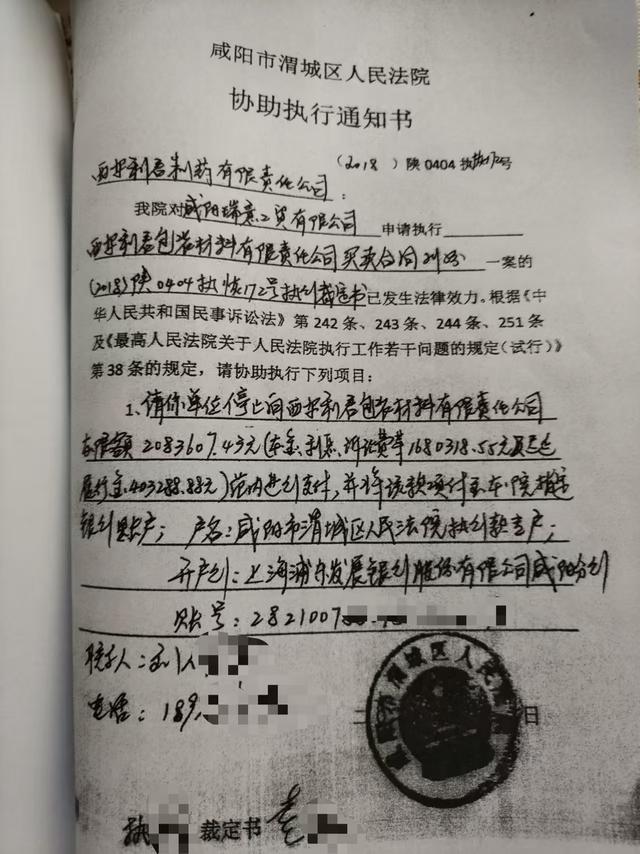 咸阳市渭城区人民法院
协助执行通知书
(2018)陕0404执恢172号
西安利君制药有限责任公司:
我院对咸阳瑞意工贸有限公司申请执行
西安利君包装材料有限责任公司买卖合同纠纷一案的
(2018)陕0404执恢172号执行裁定书已发生法律效力。根据《中
华人民共和国民事诉讼法》第242条、243条、244条、251条
及《最高人民法院关于人民法院执行工作若干问题的规定(试行)》
第38条的规定,请协助执行下列项目:
1、请你单位停止向西安利君包装材料有限责任公司
在限额2083607.43元(本金、利息、诉讼费等1680318.55元及迟延
履行金403288.88元)范围内进行支付,并将该款项付至本院指定
银行账户;户名:咸阳市渭城区人民法院执行款专户;
开户行:上海浦东发展银行股份有限公司咸阳分行
账号:2821007
联系人:
电话:189
二 日
咸阳市渭城区人民法院
执 裁定书